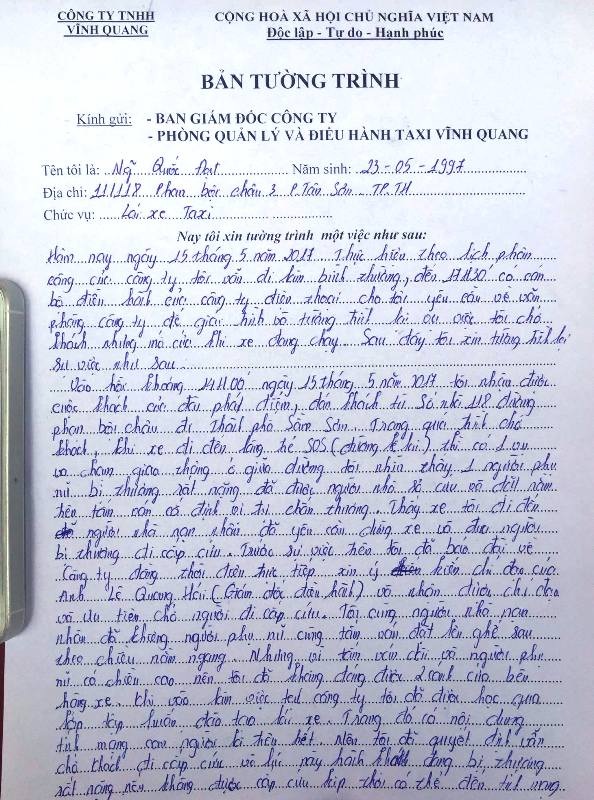 CÔNG TY TNHH
VĨNH QUANG
CỘNG HOÀ XÃ HỘI CHỦ NGHĨA VIỆT NAM
Độc lập - Tự do - Hạnh phúc
BẢN TƯỜNG TRÌNH
Kính gửi: - BAN GIÁM ĐỐC CÔNG TY
- PHÒNG QUẢN LÝ VÀ ĐIỀU HÀNH TAXI VĨNH QUANG
Tên tôi là: Ngũ Quốc Đạt Năm sinh: 23-05-1997
Địa chỉ: 111/118 Phan bội châu 3 P. Tân Sơn TP.TH
Chức vụ: Lái xe Taxi
Nay tôi xin tường trình một việc như sau:
Hôm nay ngày 15 tháng 5 năm 2017. Thực hiện theo lịch phân
công của công ty tôi vẫn đi làm bình thường, đến 17H30' có cán
bộ điều hành của công ty điện thoại cho tôi yêu cầu về văn
phòng công ty để giải trình và tường trình lại vụ việc tôi chở
khách nhưng mở cửa khi xe đang chạy. Sau đây tôi xin tường trình lại
sự việc như sau
Vào hồi khoảng 14H00' ngày 15 tháng 5 năm 2017 tôi nhận được
cuốc khách của đài phát điểm, đón khách từ Số nhà 118 đường
phan bội châu đi Thành phố Sầm Sơn. Trong quá trình chở
khách, khi xe đi đến làng trẻ SOS (đường) thì có 1 vụ
va chạm giao thông ở giữa đường tôi nhìn thấy 1 người phụ
nữ bị thương rất nặng đã được người nhà sơ cứu và đặt nằm
trên tấm ván cố định vị trí chấn thương. Thấy xe tôi đi đến
người nhà nạn nhân đã yêu cầu dừng xe và đưa người
bị thương đi cấp cứu. Trước sự việc trên tôi đã báo đài về
Công ty đồng thời điện trực tiếp xin ý kiến chỉ đạo của
Anh Lê Quang Hải (Giám đốc điều hành) và nhận được chỉ đạo
và ưu tiên chở người đi cấp cứu. Tôi cùng người nhà nạn
nhân đã khiêng người phụ nữ cùng tấm ván đặt lên ghế sau
theo chiều nằm ngang. Nhưng vì tấm ván dài và người phụ
nữ có chiều cao nên tôi đã không đóng được 2 cánh cửa bên
hông xe. Khi vào làm việc tại công ty tôi đã được học qua
lớp tập huấn đào tạo lái xe. Trong đó có nội dung
tính mạng con người là trên hết. Nên tôi đã quyết định vẫn
chở khách đi cấp cứu vì lúc này hành khách đang bị thương
rất nặng nếu không được cấp cứu kịp thời có thể đến tính mạng